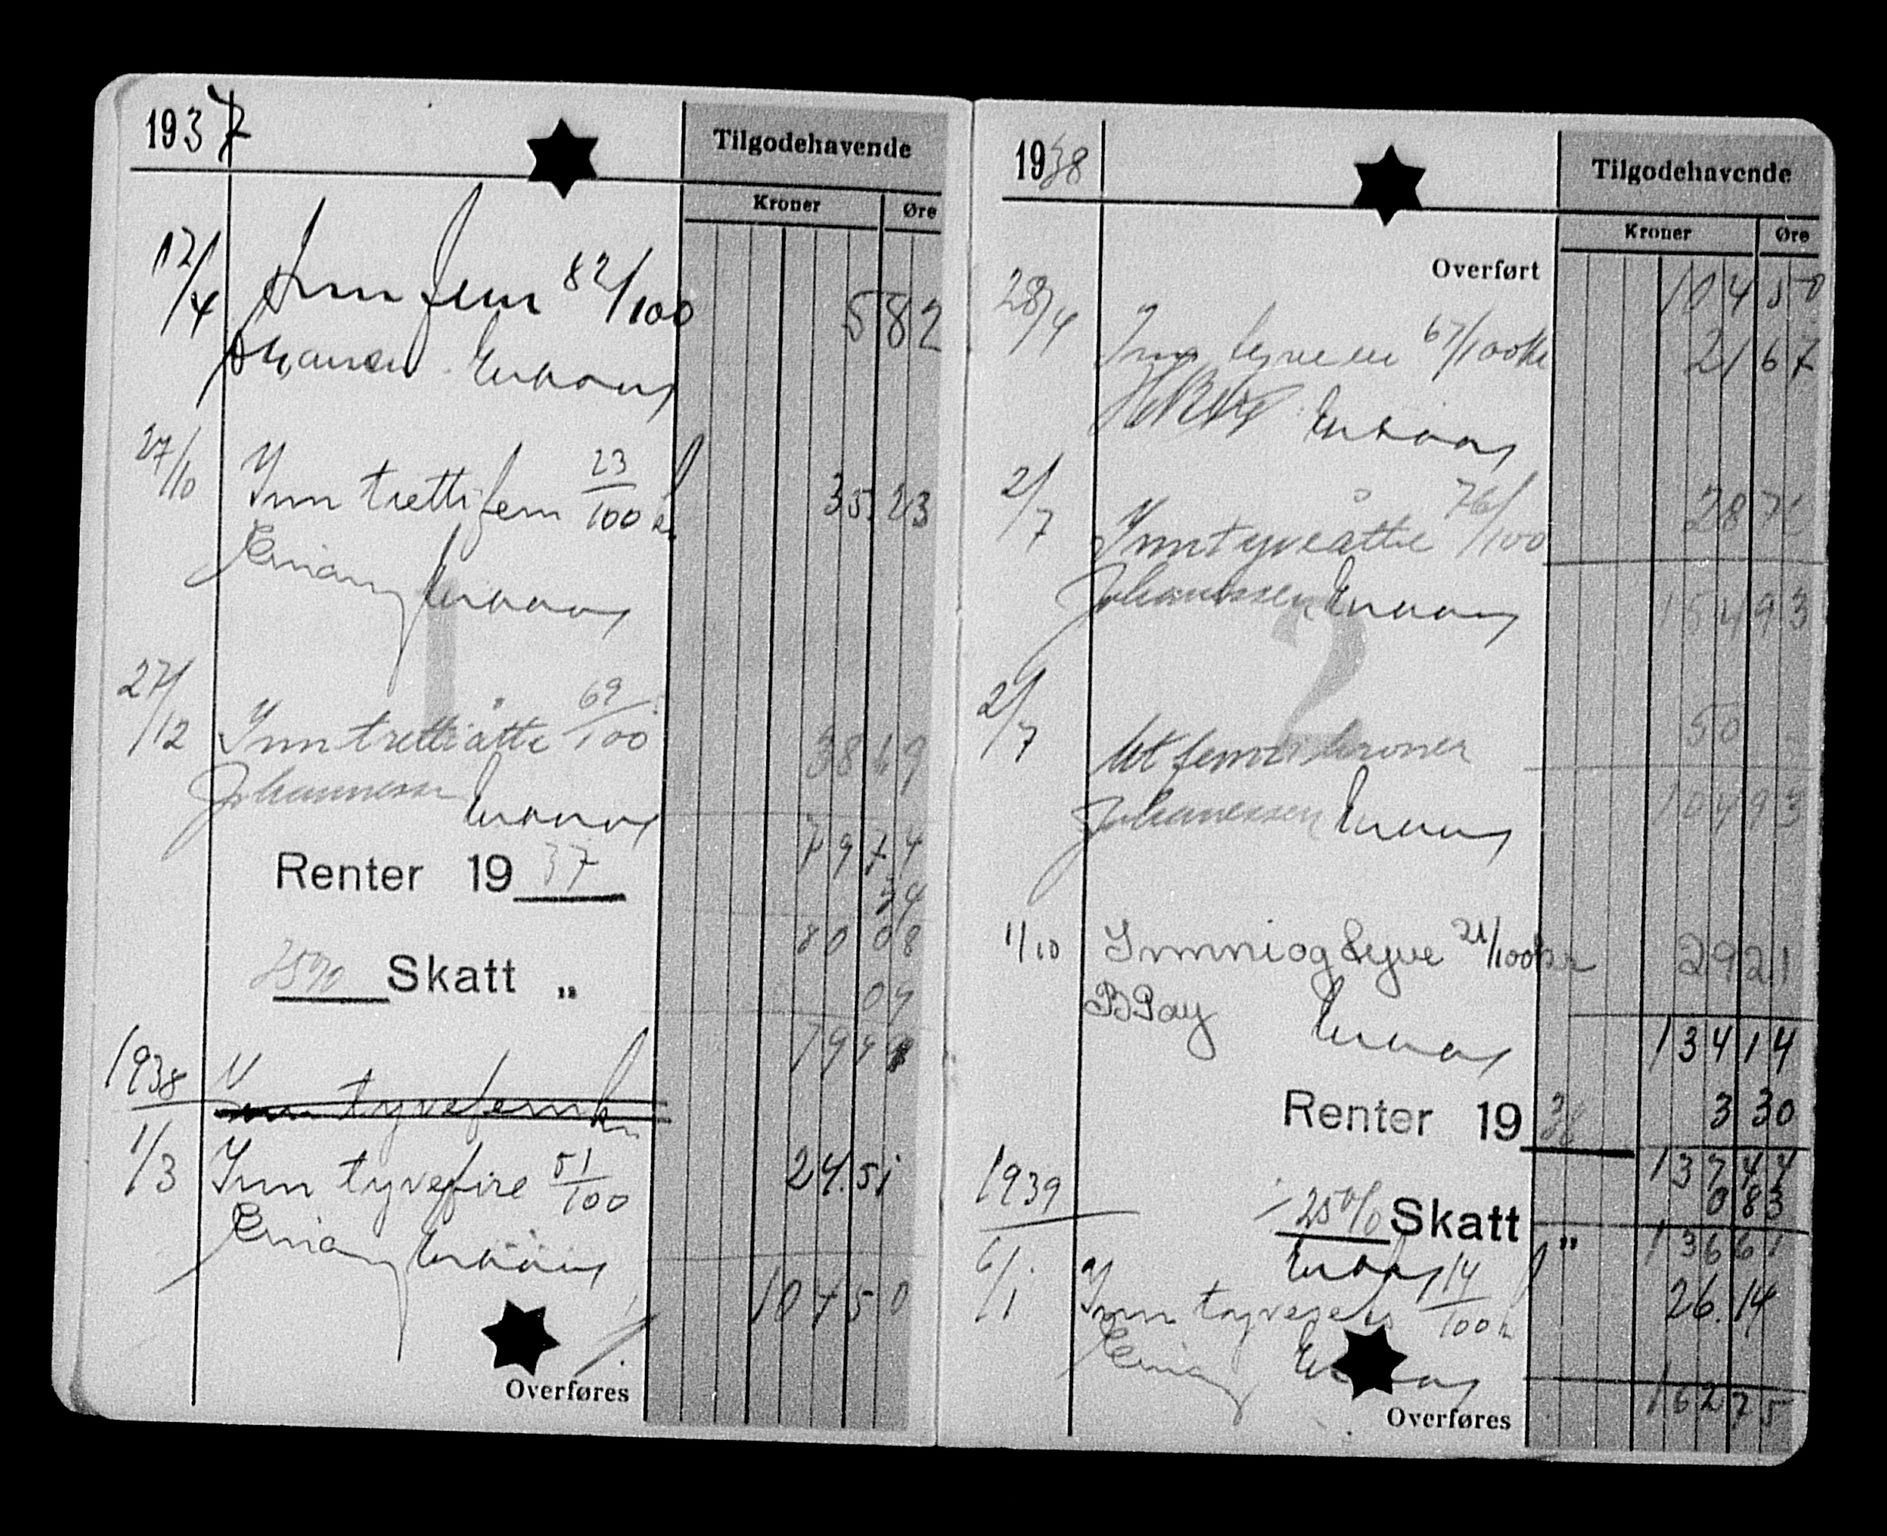 1937
Tilgodehavende
Kroner Øre
12/4 Inn fem 82/100 5 82
27/10 Inn trettifem 23/100 kr 35.23
27/12 Inn trettiåtte 69/100 38 69
Johannessen
79 74
Renter 1937 34
80 08
25% Skatt „ 09
79 99
1938 Inn tyvefem kr
1/3 Inn tyvefire 51/100 24.51
104 50
Overføres
1
1938
Tilgodehavende
Kroner Øre
Overført 104 50
28/4 Inn tyveen 67/100 kr 21 67
2/7 Inn tyveåtte 76/100 28 76
Johanessen 154 93
2/7 Ut femti kroner 50 -
Johanessen 104 93
1/10 Inn niogtyve 21/100 kr 29 21
BPay
134 14
Renter 1938 3 30
137 44
1939 25% Skatt „ 0 83
136 61
6/1 Inn tyveseks 14/100 kr 26.14
162 75
Overføres
2